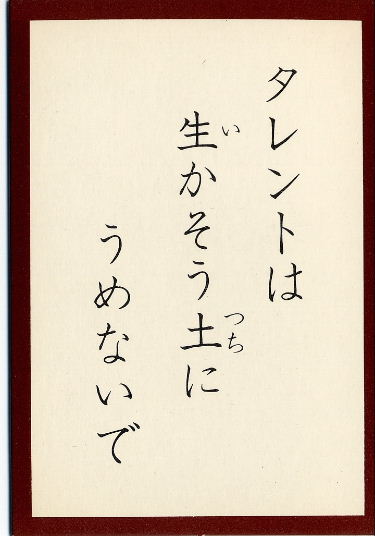 タレントは
生かそう土に
うめないで